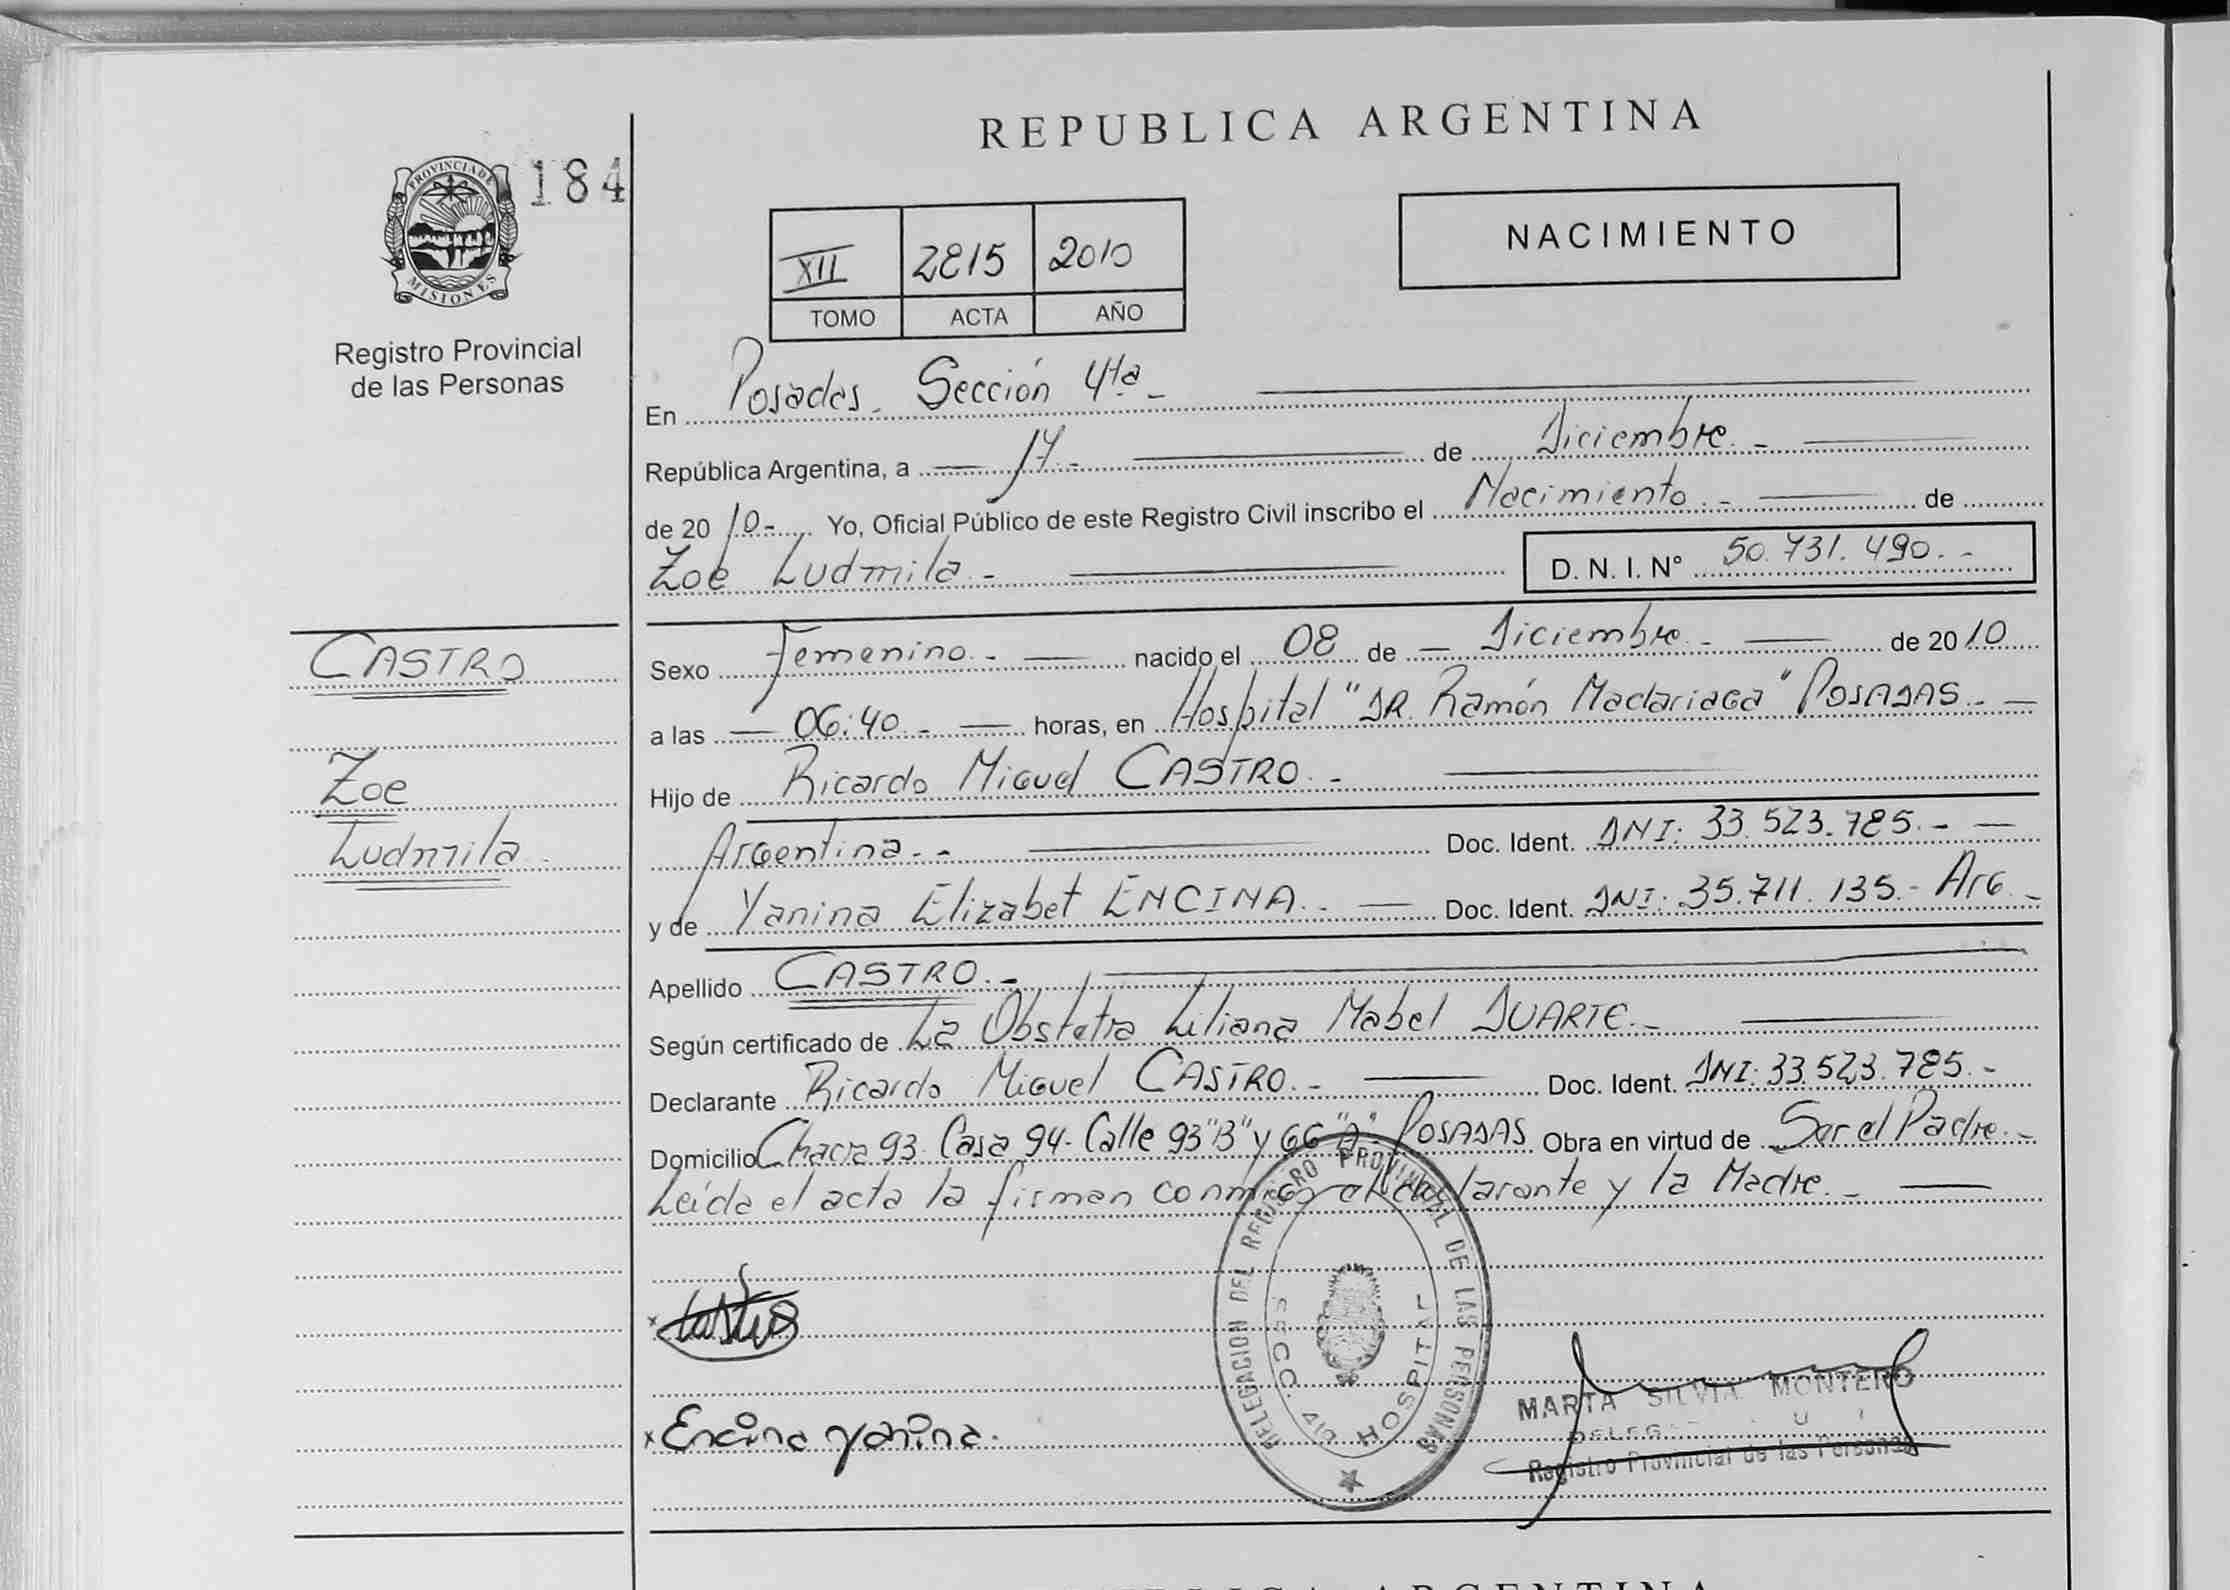 REPUBLICA ARGENTINA
PROVINCIA DE MISIONES
184
Registro Provincial
de las Personas
XII 2815 2010
TOMO ACTA AÑO
NACIMIENTO
En Posadas. Sección 4ta -
República Argentina, a 17.- de Diciembre.-
de 20 10.- Yo, Oficial Público de este Registro Civil inscribo el Nacimiento.- de
Zoe Ludmila.- D. N. I. N° 50.731.490.-
CASTRO
Zoe
Ludmila.
Sexo Femenino.- nacido el 08 de Diciembre.- de 20 10
a las 06:40.- horas, en Hospital "DR. Ramón Madariaga" POSADAS.-
Hijo de Ricardo Miguel CASTRO.-
Argentina.- Doc. Ident. DNI: 33.523.785.-
y de Yanina Elizabet ENCINA.- Doc. Ident. DNI: 35.711.135.- Arg.-
Apellido CASTRO.-
Según certificado de La Obstetra Liliana Mabel DUARTE.-
Declarante Ricardo Miguel CASTRO.- Doc. Ident. DNI: 33.523.785.-
Domicilio Chacra 93. Casa 94. Calle 93 "B" y 66 "A". POSADAS Obra en virtud de Ser el Padre.-
Leída el acta la firman conmigo el declarante y la Madre.-
DELEGACION DEL REGISTRO PROVINCIAL DE LAS PERSONAS
SECC. 4ta HOSPITAL
Castro
Encina yanina.
MARTA SILVIA MONTERO
Registro Provincial de las Personas
REPUBLICA ARGENTINA